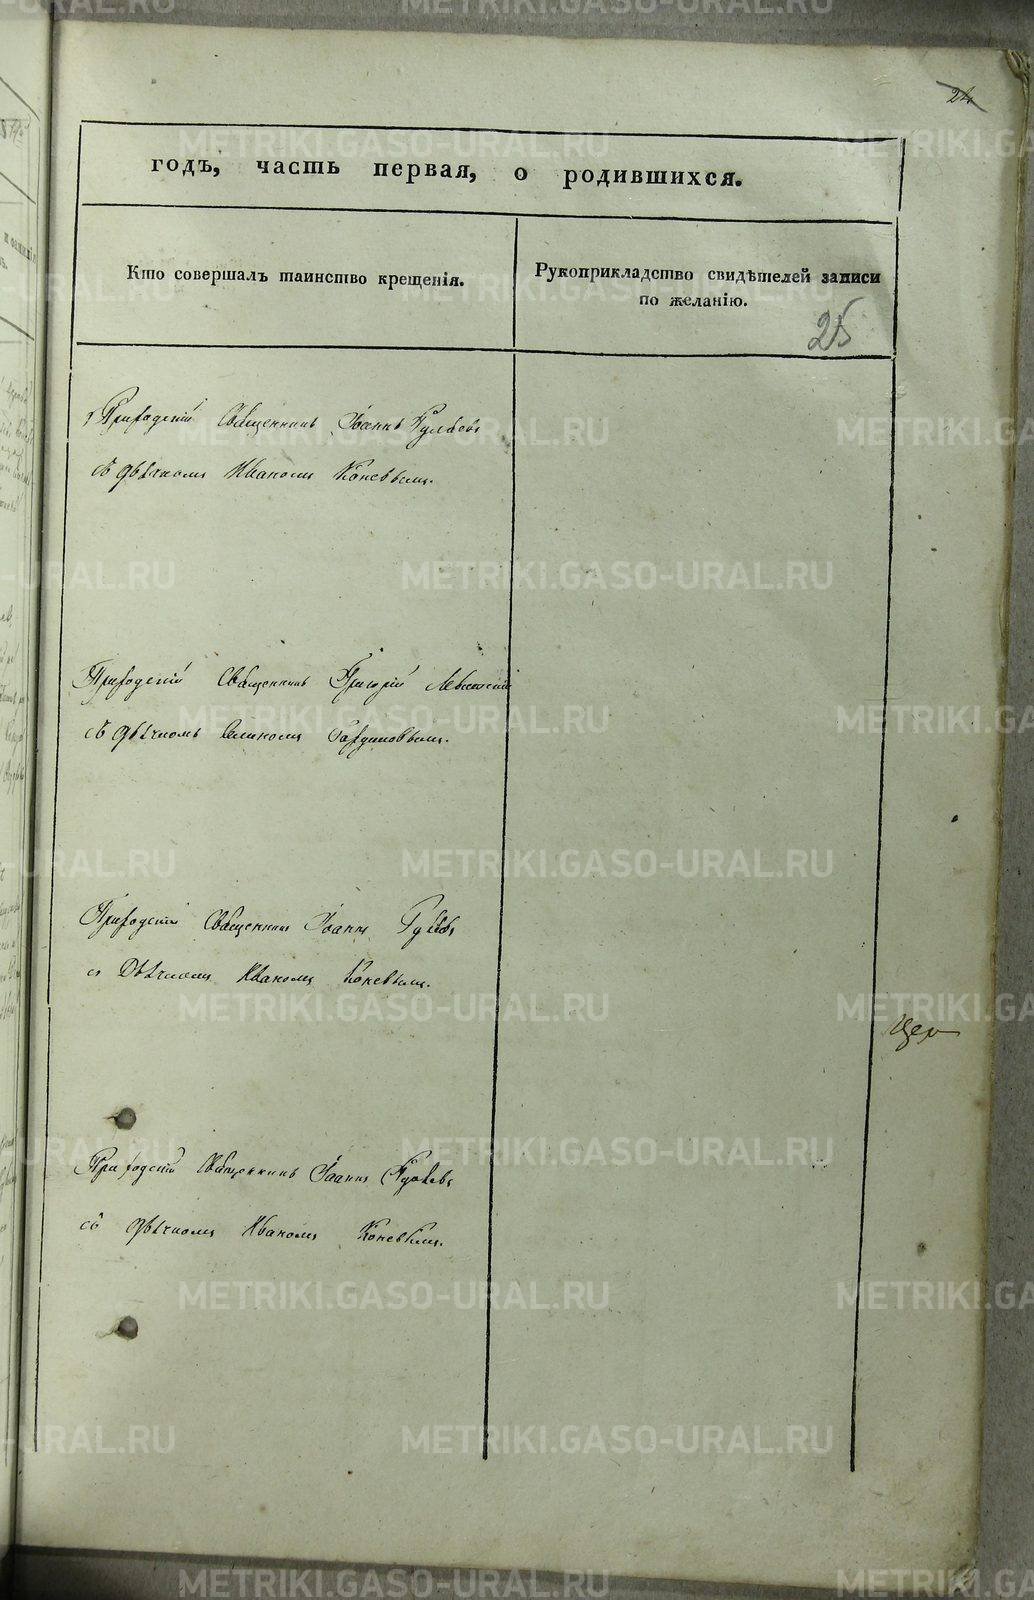 24
годъ, часть первая, о родившихся.
Кто совершалъ таинство крещенія.
Рукоприкладство свидѣтелей записи
по желанію.
25
Приходскій Священникъ Іоаннъ Гуляевъ
съ дьячкомъ Иваномъ Коневымъ.
Приходскій Священникъ Григорій Левитскій
съ дьячкомъ
Приходскій Священникъ Іоаннъ
съ Дьячкомъ Иваномъ Коневымъ.
Приходскій Священникъ Іоаннъ
съ дьячкомъ Иваномъ Коневымъ.
METRIKI.GASO-URAL.RU